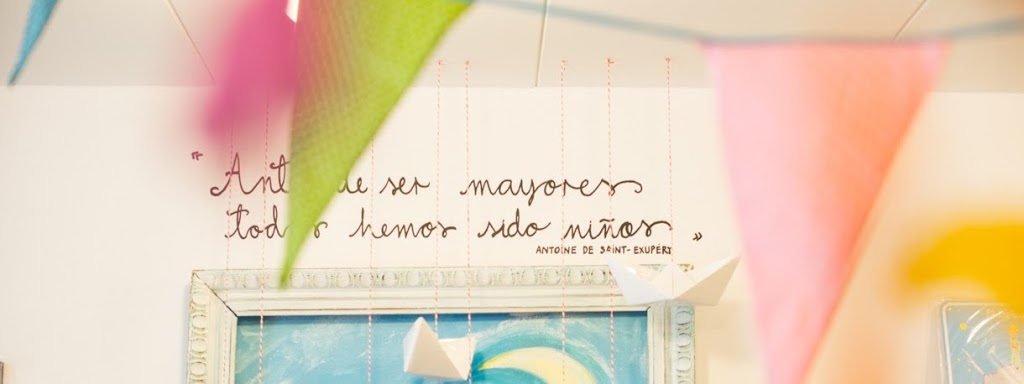 « Antes de ser mayores
todos hemos sido niños »
ANTOINE DE SAINT-EXUPÉRY